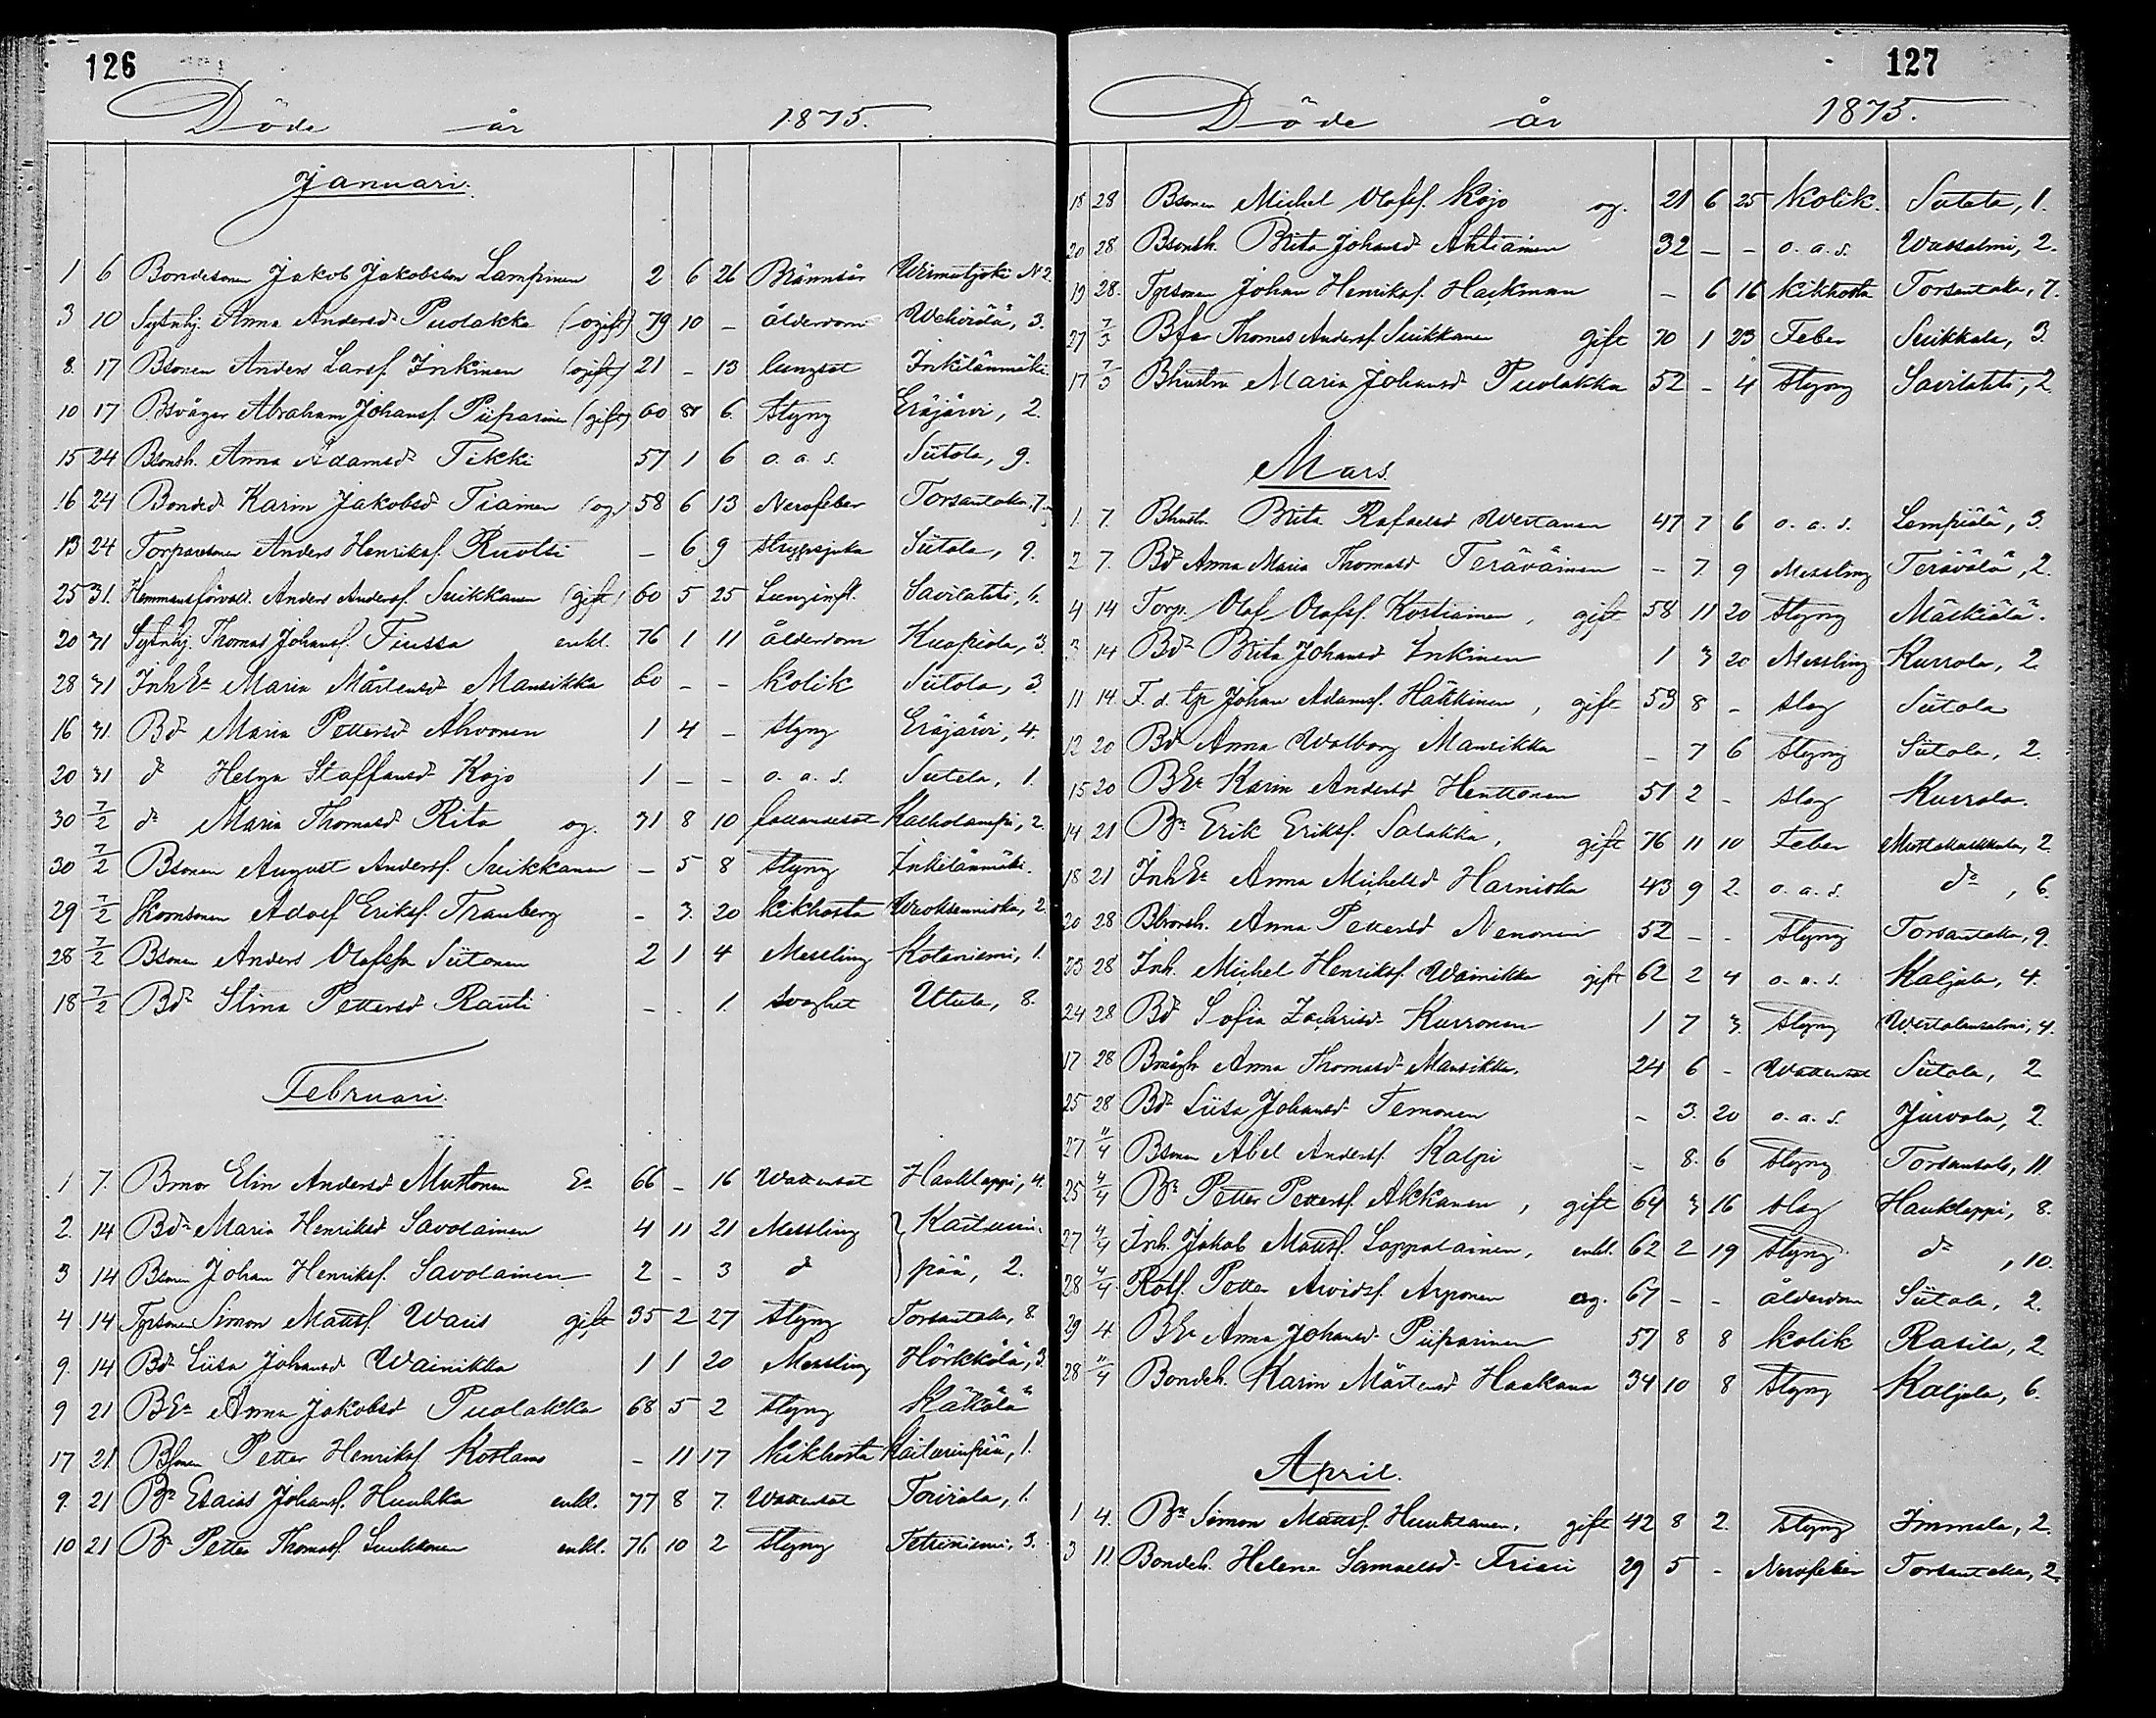 126
Döde år 1875.
Januari.
1 6 Bondesonen Jakob Jakobsson Lampinen 2 6 26 Brännsår Wirmutjoki N 2.
3 10 Sytnhj. Anna Andersd Puolakka (ogift) 79 10 - ålderdom 3.
8. 17 Bsonen Anders Larsf. Inkinen (ogift) 21 - 13 lungsot Inkilänmäki
10 17 Bsvåger Abraham Johansf. Piiparinen (gift) 60 8 6. styng Eräjärvi, 2.
15 24 Bsonsh. Anna Adamsd Tikki 57 1 6 o. a. s. Siitola, 9.
16 24 Bonded Karin Jakobsd Tiainen (og) 58 6 13 Nervfeber Torsantaka, 7.
13 24 Torparesonen Anders Henriksf. Ruotsi - 6 9 strypsjuka Siitola, 9.
25 31. Hemmansförvalt. Anders Andersf. Suikkanen (gift) 60 5 25 Lunginfl. Savilahti, 6.
20 31 Sytnhj. Thomas Johansf. Tiussa enkl. 76 1 11 ålderdom Kuapiola, 3.
28 31 Inh Ea Maria Mårtensd Mansikka 60 - - kolik Siitola, 3.
16 31. Bdr Maria Pettersd Ahvonen 1 4 - styng Eräjärvi, 4.
20 31 d Helga Staffansd Kojo 1 - - o. a. s. Siitola, 1.
30 7/2 dr Maria Thomasd Rita og. 31 8 10 fallandesot Kalholampi, 2.
30 7/2 Bsonen August Andersf. Suikkanen - 5 8 styng Inkilänmäki.
29 7/2 Skomsonen Adolf Eriksf. Tranberg - 3. 20 kikhosta Wuoksenniska, 2.
28 7/2 Bsonen Anders Olofssn Siitonen 2 1 4 Messling Kotaniemi, 1.
18 7/2 Bdr Stina Pettersd Rauti - - 1. svaghet Utula, 8.
Februari.
1 7. Bmor Elin Andersd Muttonen Ea 66 - 16 Wattensot Hauklappi, 4.
2. 14 Bdr Maria Henriksd Savolainen 4 11 21 Messling } Kaiturin-
3 14 Bsonen Johan Henriksf. Savolainen 2 - 3 d } pää, 2.
4 14 Tprsonen Simon Mattsf. Waris gift 35 2 27 styng Torsantaka, 8.
9. 14 Bdr Liisa Johansd Wainikka 1 1 20 Messling Hörkkölä, 3.
9 21 BEa Anna Jakobsd Puolakka 68 5 2 styng Kätkälä
17 21. Bsonen Petter Henriksf Kostamo - 11 17 Kikhosta Kaiturinpää, 1.
9. 21 Br Esaias Johansf. Huuhka enkl. 77 8 7. Wattensot Torivala, 1.
10 21 Br Petter Thomasf. enkl. 76 10 2 styng Tetriniemi, 3.
127
Döde år 1875.
18 28 Bsonen Michel Olofsf. Kojo og. 21 6 25 Kolik. Siitola, 1.
20 28 Bsonsh. Brita Johansd Ahtiainen 32 - - o. a. s. Wassalmi, 2.
19 28. Tprsonen Johan Henriksf. Hackman - 6 16 kikhosta Torsantaka, 7.
27 7/3 Bfar Thomas Andersf. Suikkanen gift 70 1 23 Feber Suikkala, 3.
17 7/3 Bhustru Maria Johansd Puolakka 52 - 4 styng Savilahti, 2.
Mars
1. 7. Bhustr. Brita Rafaelsd Westanen 47 7 6 o. a. s. Lempiälä, 3.
2 7. Bdr Anna Maria Thomasd Teräväinen - 7. 9 Messling Terävälä, 2.
4 14 Torp. Olof Olofsf. Kostiainen, gift 58 11 20 styng Mälkiälä.
3 14 Bdr Brita Johansd Inkinen 1 3 20 Messling Kurrola, 2.
11 14. F. d. tp Johan Adamsf. Häkkinen, gift 53 8 - slag Siitola
12 20 Bdr Anna Walborg Mansikka - 7 6 styng Siitola, 2.
15 20 BEa Karin Andersd Henttonen 51 2 - slag Kurrola.
14 21 Br Erik Eriksf. Salakka, gift 76 11 10 Feber 2.
18 21 Inh Ea Anna Michelsd Harniska 43 9 2. o. a. s. dr, 6.
20 28 Bbrorsh. Anna Pettersd Nenonen 52 - - styng Torsantaka, 9.
23 28 Inh. Michel Henriksf. Wainikka gift 62 2 4 o. a. s. Kaljala, 4.
24 28 Bdr Sofia Zachrisd Kurronen 1 7 3. styng 4.
17 28 Bmågh Anna Thomasd Mansikka. 24 6 - Wattensot Siitola, 2
25 28 Bdr Liisa Johansd Temonen - 3. 20 o. a. s. Jurvala, 2.
27 11/4 Bsonen Abel Andersf. Kalpi - 8. 6 styng Torsansalo, 11.
25 4/4 Br Petter Pettersf. Akkanen, gift 64 3 16 slag Hauklappi, 8.
27 4/4 Inh. Jakob Mattsf. Lappalainen, enkl. 62 2 19 styng dr, 10.
28 4/4 Rotf. Petter Arvidsf. Arponen og. 67 - - ålderdom Siitola, 2.
29 4 BEa Anna Johansd Piiparinen 57 8 8 kolik Rasila, 2.
28 11/4 Bondeh. Karin Mårtensd Haakana 34 10 8 styng Kaljala, 6.
April.
1 4. Br Simon Mattsf. gift 42 8 2. styng Immala, 2.
3 11. Bondeh. Helena Samuelsd Frisri 29 5 - Nervfeber Torsantaka, 2.